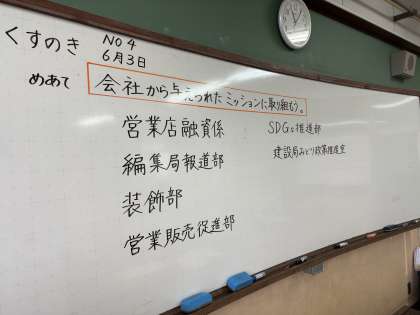 くすのき
NO 4
6月3日
めあて
会社から与えられたミッションに取り組もう。
営業店融資係
編集局報道部
装飾部
営業販売促進部
SDGs推進部
建設局みどり政策推進室